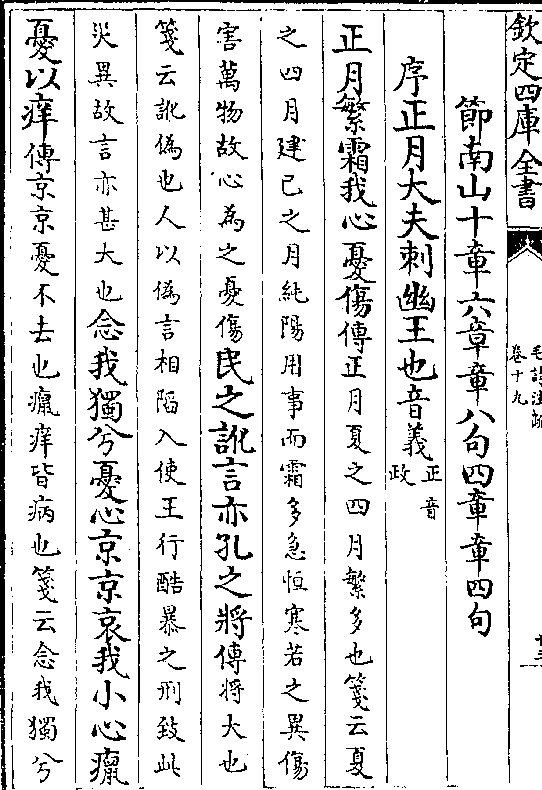 欽定四庫全書
毛詩注疏
卷十九
節南山十章六章章八句四章章四句
序正月大夫刺幽王也音義正音政
正月繁霜我心憂傷傳正月夏之四月繁多也箋云夏
之四月建巳之月純陽用事而霜多急恒寒若之異傷
害萬物故心為之憂傷民之訛言亦孔之將傳將大也
箋云訛偽也人以偽言相陷入使王行酷暴之刑致此
災異故言亦甚大也念我獨兮憂心京京哀我小心癙
憂以痒傳京京憂不去也癙痒皆病也箋云念我獨兮